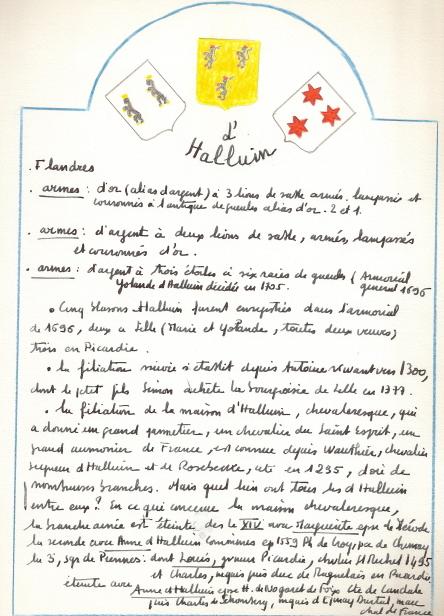 d'
Halluin
. Flandres
. armes : d'or (alias d'argent) à 3 lions de sable armés, lampassés et
couronnés à l'antique de gueules alias d'or. 2 et 1.
. armes : d'argent à deux lions de sable, armés, lampassés
et couronnés d'or.
. armes : d'argent à trois étoiles à six raies de gueules (Armorial
général 1696
Yolande d'Halluin décédée en 1705.
• Cinq blasons Halluin furent enregistrés dans l'armorial
de 1696, deux à Lille (Marie et Yolande, toutes deux veuves)
trois en Picardie.
• la filiation suivie s'établit depuis Antoine vivant vers 1300,
dont le petit fils Simon achète la bourgeoisie de Lille en 1377.
• la filiation de la maison d'Halluin, chevaleresque, qui
a donné un grand , un chevalier du Saint Esprit, un
grand aumonier de France, est connue depuis Wauthier, chevalier
seigneur d'Halluin et de Roosbecke, cité en 1235, d'où de
nombreuses branches. Mais quel lien ont tous les d'Halluin
entre eux? En ce qui concerne la maison chevaleresque,
la branche ainée est éteinte dès le XIV avec Marguerite epse de
la seconde avec Anne d'Halluin Commines ep 1559 Ph de Croy, pce de Chimay
la 3, sgr de Piennes: dont Louis, gouveur Picardie, chvlier St Michel 1495
et Charles, mquis puis duc de Maguelais en Picardie
éteinte avec Anne d'Halluin epse H. de Nogaret de Foix cte de Candale
puis Charles de Schomberg, mquis d'Epinay Durtal, maré
chal de France